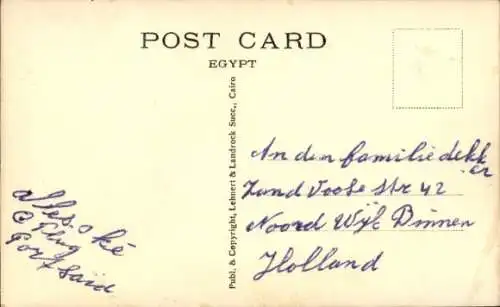 POST CARD
EGYPT
Publ. & Copyright, Lehnert & Landrock Succ., Cairo
alles o ké
Port Said
An den familie dekker
Zand Voose str 42
Noord Wijk Binnen
Holland